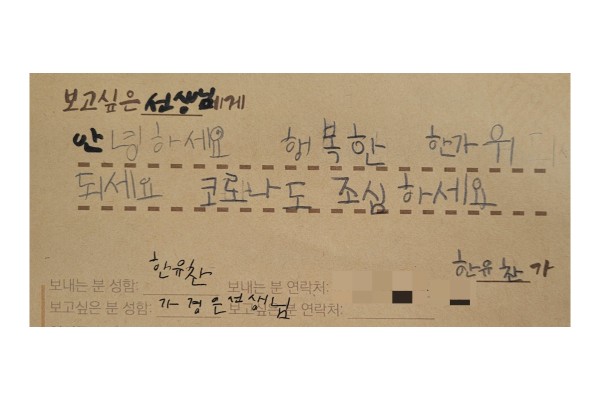 보고싶은 선생님에게
안녕하세요 행복한 한가위
되세요 코로나도 조심하세요
한유찬가
보내는 분 성함: 한유찬 보내는 분 연락처:
보고싶은 분 성함: 가경은선생님 보고싶은 분 연락처: